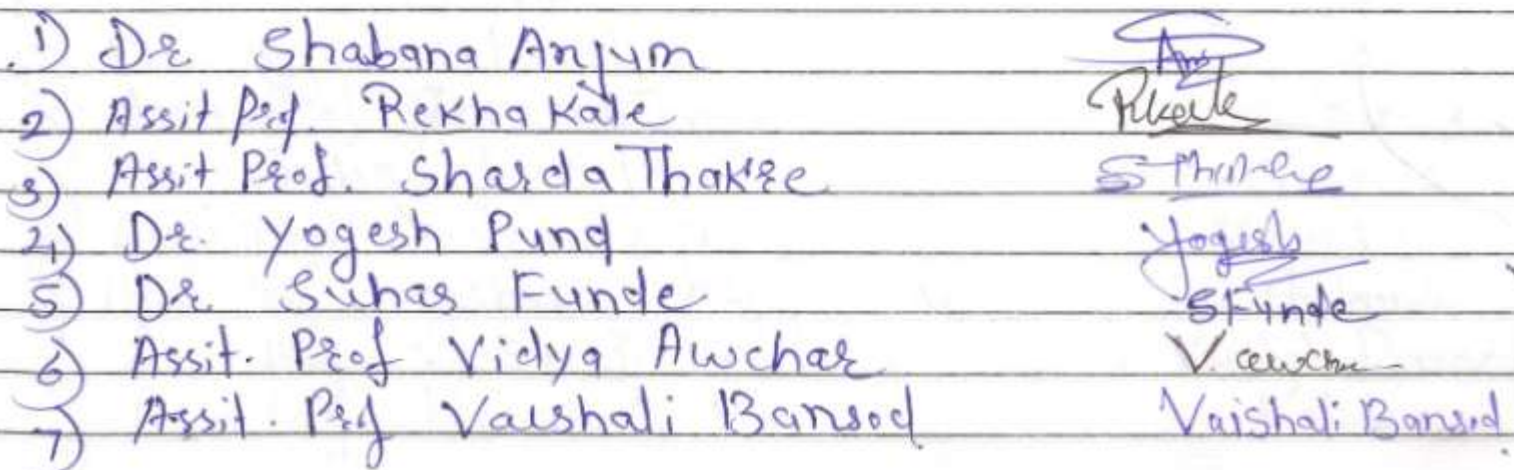 1) Dr Shabana Anjum
2) Assit Prof. Rekha Kale Rkale
3) Assit Prof. Sharda Thakre
4) Dr. Yogesh Pund Yogesh
5) Dr. Suhas Funde SFunde
6) Assit. Prof Vidya Awchar V.
7) Assit. Prof Vaishali Bansod Vaishali Bansod